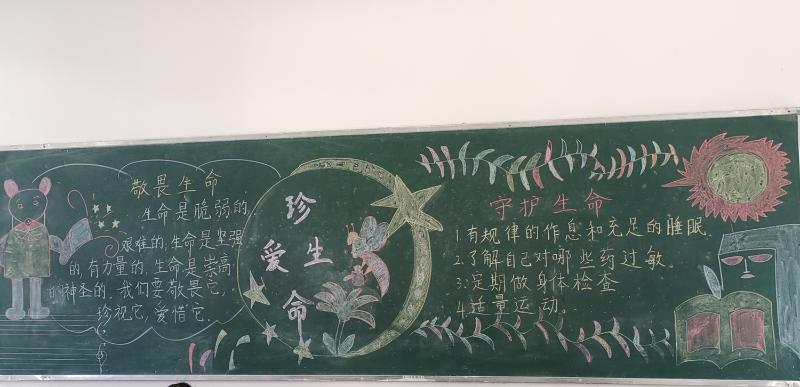 敬畏生命
生命是脆弱的,
艰难的,生命是坚强
的,有力量的,生命是崇高
的神圣的.我们要敬畏它,
珍视它,爱惜它.
珍
爱生
命
守护生命
1.有规律的作息和充足的睡眠.
2.了解自己对哪些药过敏.
3.定期做身体检查
4.适量运动.